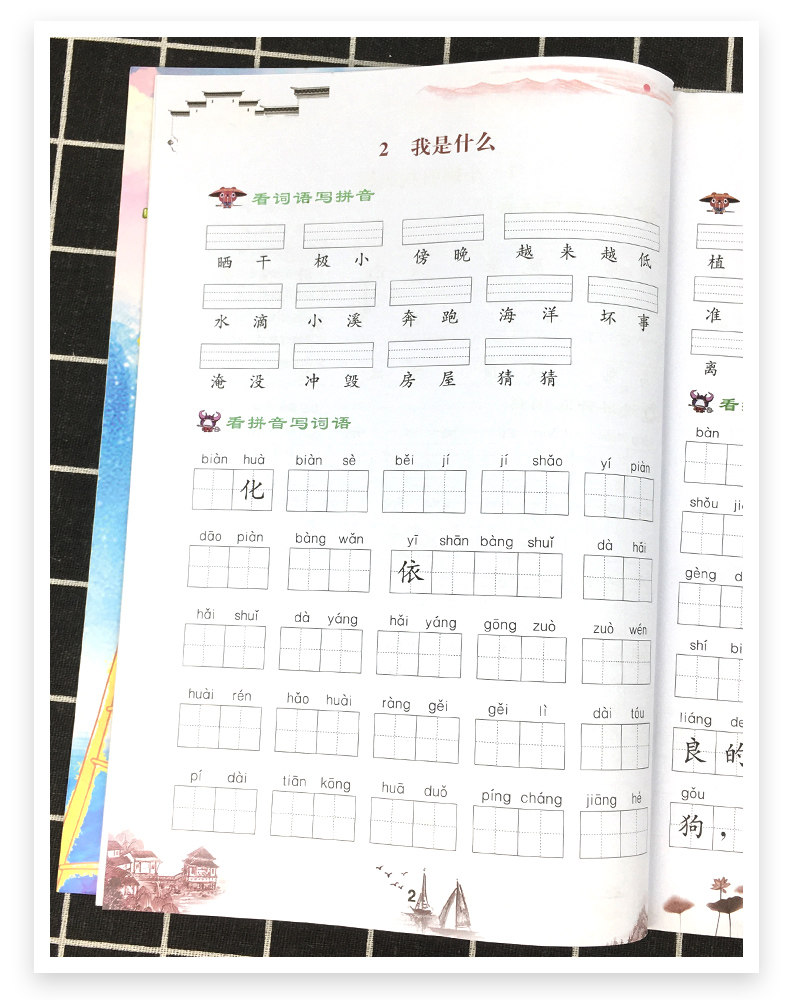 2 我是什么
看词语写拼音
晒 干 极 小 傍 晚 越 来 越 低
水 滴 小 溪 奔 跑 海 洋 坏 事
淹 没 冲 毁 房 屋 猜 猜
看拼音写词语
biàn huà biàn sè běi jí jí shǎo yí piàn
化
dāo piàn bàng wǎn yī shān bàng shuǐ dà hǎi
依
hǎi shuǐ dà yáng hǎi yáng gōng zuò zuò wén
huài rén hǎo huài ràng gěi gěi lì dài tóu
pí dài tiān kōng huā duǒ píng cháng jiāng hé
2
植
准
离
看
bàn
shǒu
gèng
shí
liáng de
良 的
gǒu
狗，